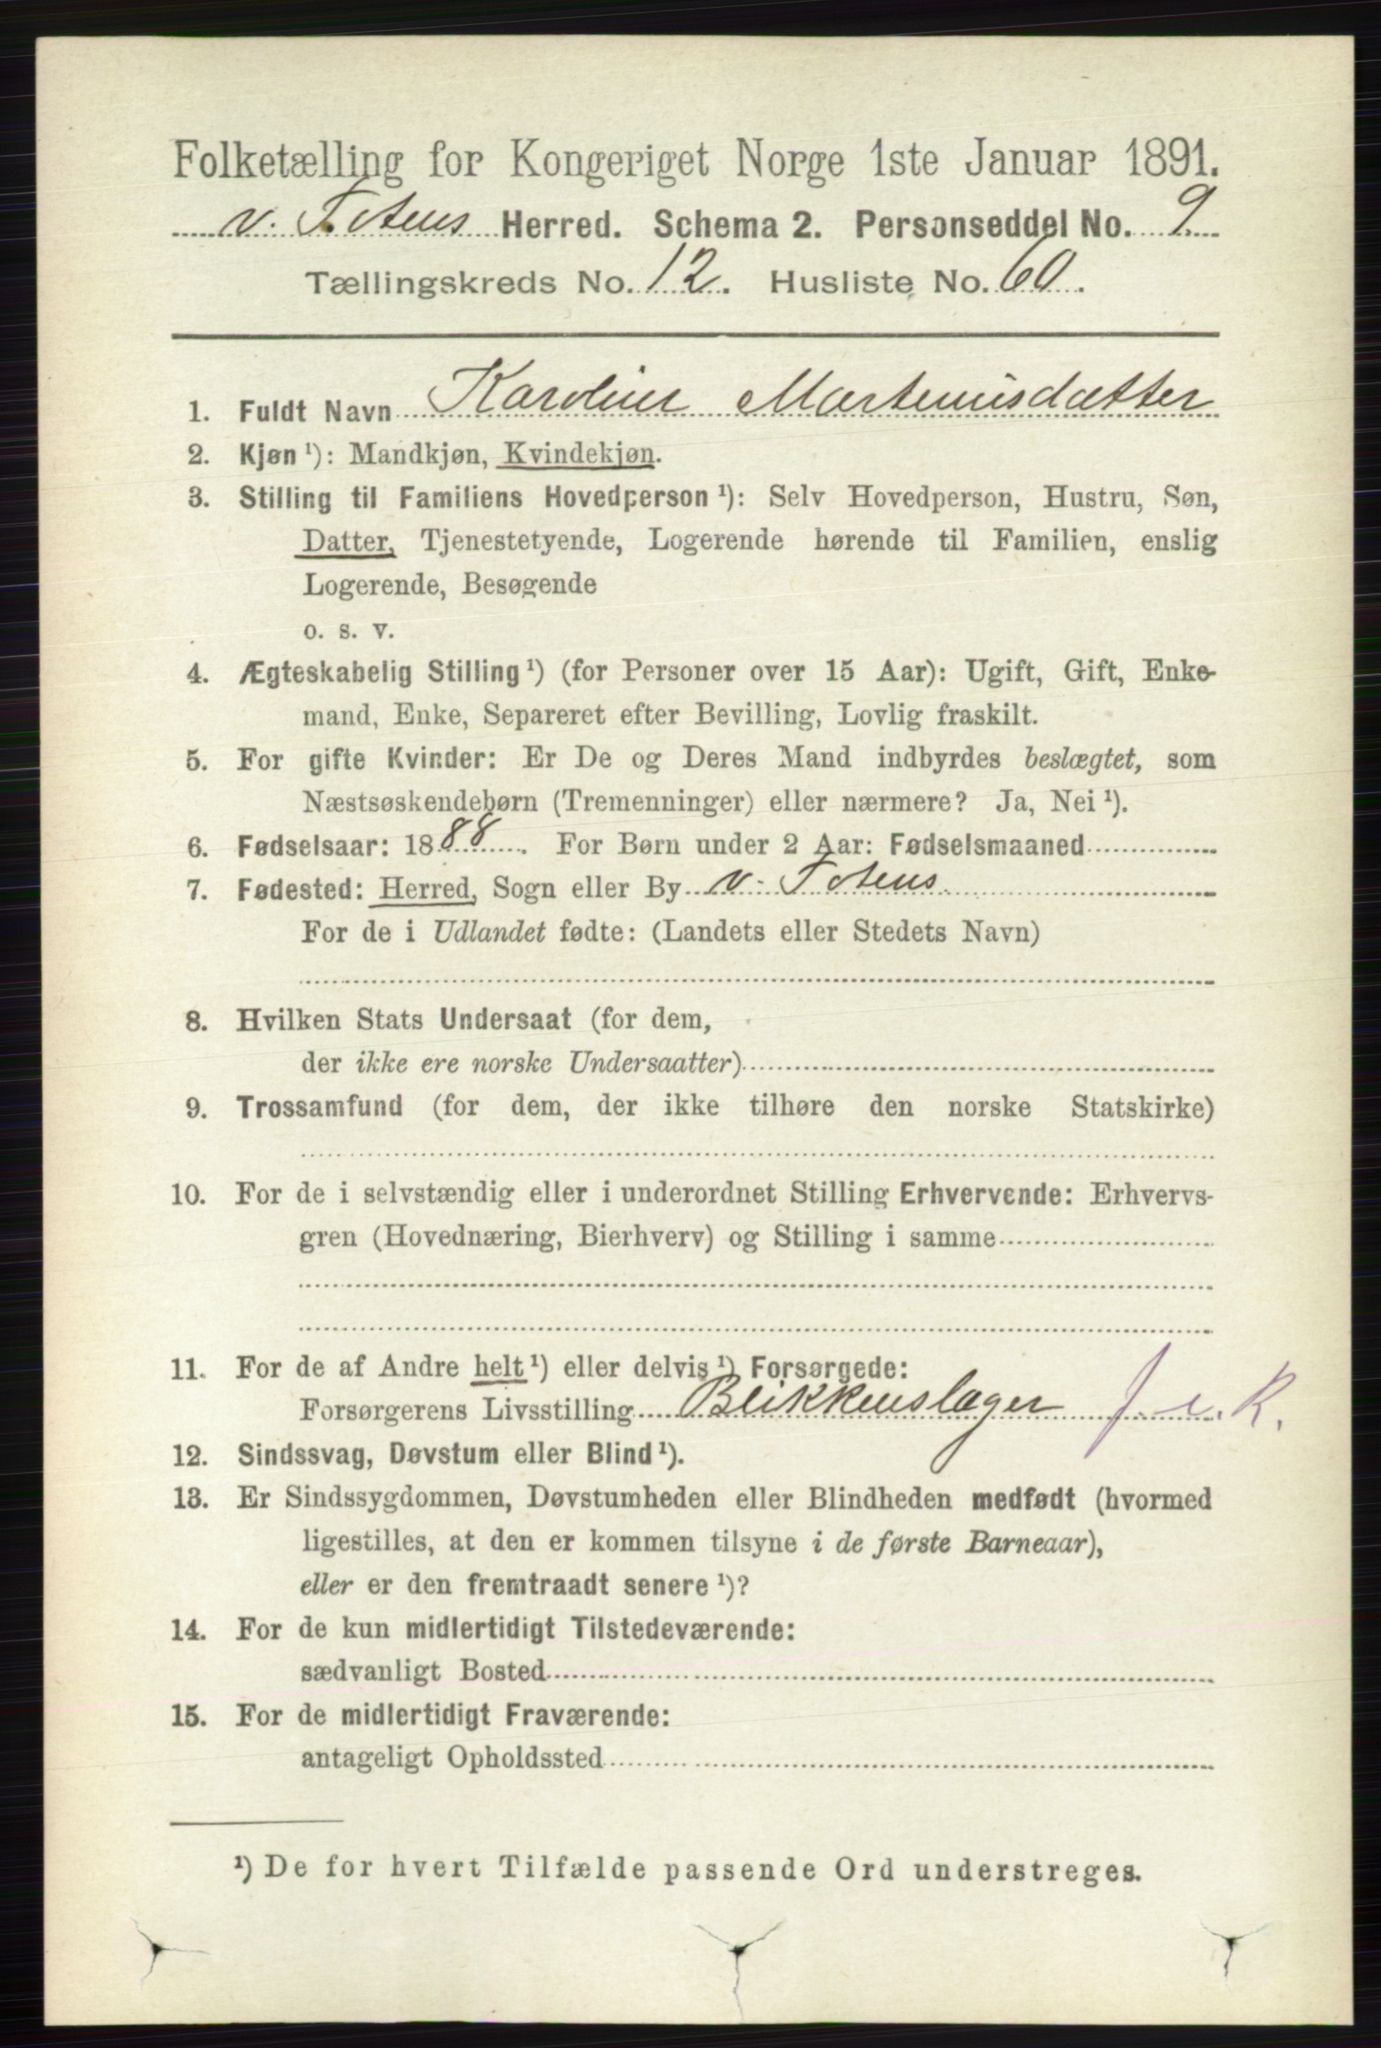 Folketælling for Kongeriget Norge 1ste Januar 1891.
v. Totens Herred. Schema 2. Personseddel No. 9
Tællingskreds No. 12. Husliste No. 60.
1. Fuldt Navn Karoline Martinusdatter
2. Kjøn ¹): Mandkjøn, Kvindekjøn.
3. Stilling til Familiens Hovedperson ¹): Selv Hovedperson, Hustru, Søn,
Datter, Tjenestetyende, Logerende hørende til Familien, enslig
Logerende, Besøgende
o. s. v.
4. Ægteskabelig Stilling ¹) (for Personer over 15 Aar): Ugift, Gift, Enke-
mand, Enke, Separeret efter Bevilling, Lovlig fraskilt.
5. For gifte Kvinder: Er De og Deres Mand indbyrdes beslægtet, som
Næstsøskendebørn (Tremenninger) eller nærmere? Ja, Nei ¹).
6. Fødselsaar: 1888. For Børn under 2 Aar: Fødselsmaaned
7. Fødested: Herred, Sogn eller By v. Totens
For de i Udlandet fødte: (Landets eller Stedets Navn)
8. Hvilken Stats Undersaat (for dem,
der ikke ere norske Undersaatter)
9. Trossamfund (for dem, der ikke tilhøre den norske Statskirke)
10. For de i selvstændig eller i underordnet Stilling Erhvervende: Erhvervs-
gren (Hovednæring, Bierhverv) og Stilling i samme
11. For de af Andre helt ¹) eller delvis ¹) Forsørgede:
Forsørgerens Livsstilling Blikkenslager
12. Sindssvag, Døvstum eller Blind ¹).
13. Er Sindssygdommen, Døvstumheden eller Blindheden medfødt (hvormed
ligestilles, at den er kommen tilsyne i de første Barneaar),
eller er den fremtraadt senere ¹)?
14. For de kun midlertidigt Tilstedeværende:
sædvanligt Bosted
15. For de midlertidigt Fraværende:
antageligt Opholdssted
¹) De for hvert Tilfælde passende Ord understreges.